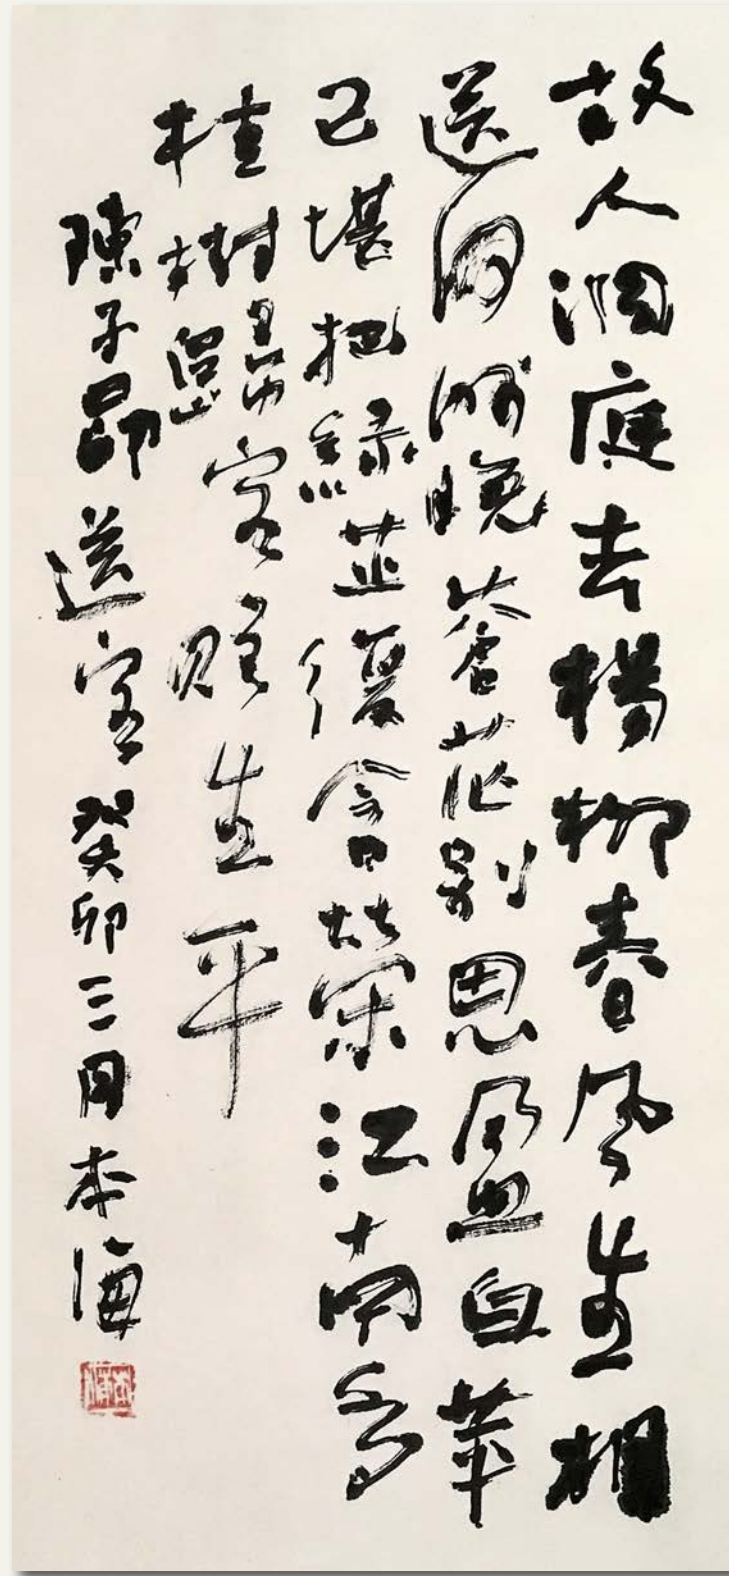 故人洞庭去楊柳春風生相
送河洲晚蒼茫别思盈白苹
已堪把綠芷復含榮江南多
桂樹歸客贈生平
陳子昂送客 癸卯三月本海